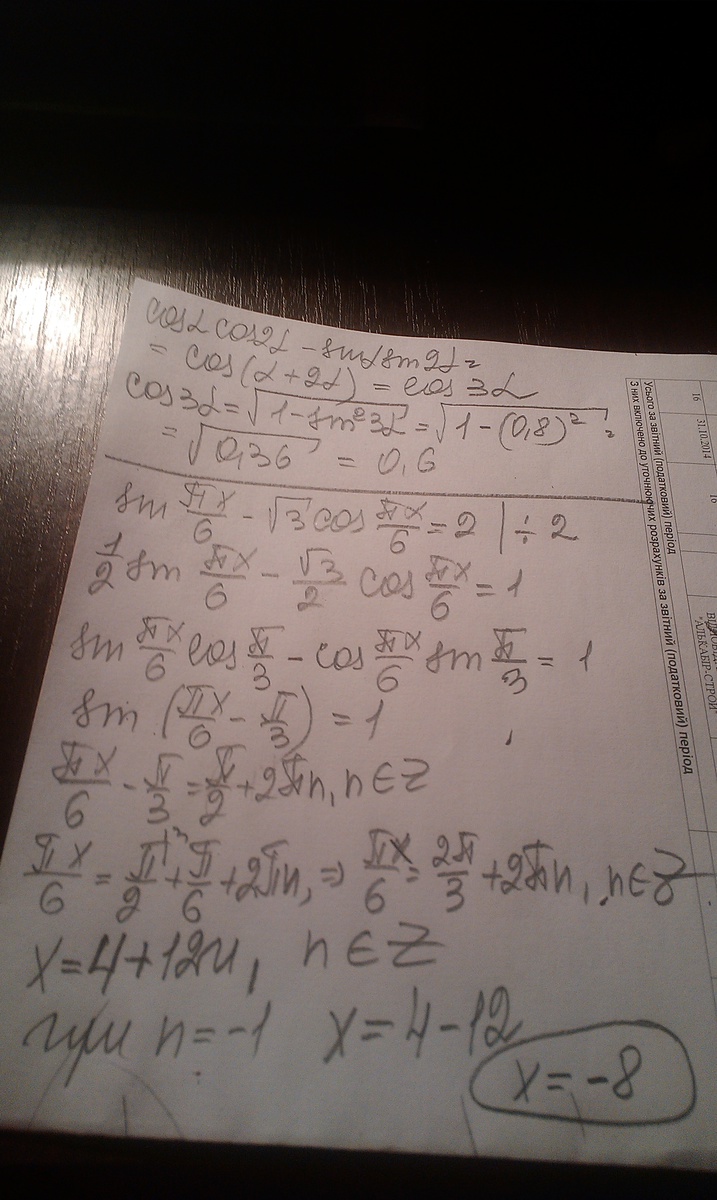 cosα cos2α - sinα sin2α =
= cos(α+2α) = cos3α
cos3α = √(1-sin²3α) = √(1-(0,8)²) =
= √0,36 = 0,6
sin πx/6 - √3 cos πx/6 = 2 | ÷ 2
1/2 sin πx/6 - √3/2 cos πx/6 = 1
sin πx/6 cos π/3 - cos πx/6 sin π/3 = 1
sin (πx/6 - π/3) = 1
πx/6 - π/3 = π/2 + 2πn, n ∈ Z
πx/6 = π/2 + π/6 + 2πn, ⇒ πx/6 = 2π/3 + 2πn, n ∈ Z
x = 4 + 12n, n ∈ Z
при n = -1 x = 4 - 12
x = -8
Усього за звітний (податковий) період
З них включено до уточнюючих розрахунків за звітний (податковий) період
16
31.10.2014
16
"АЛЬКАБІР-СТРОЙ